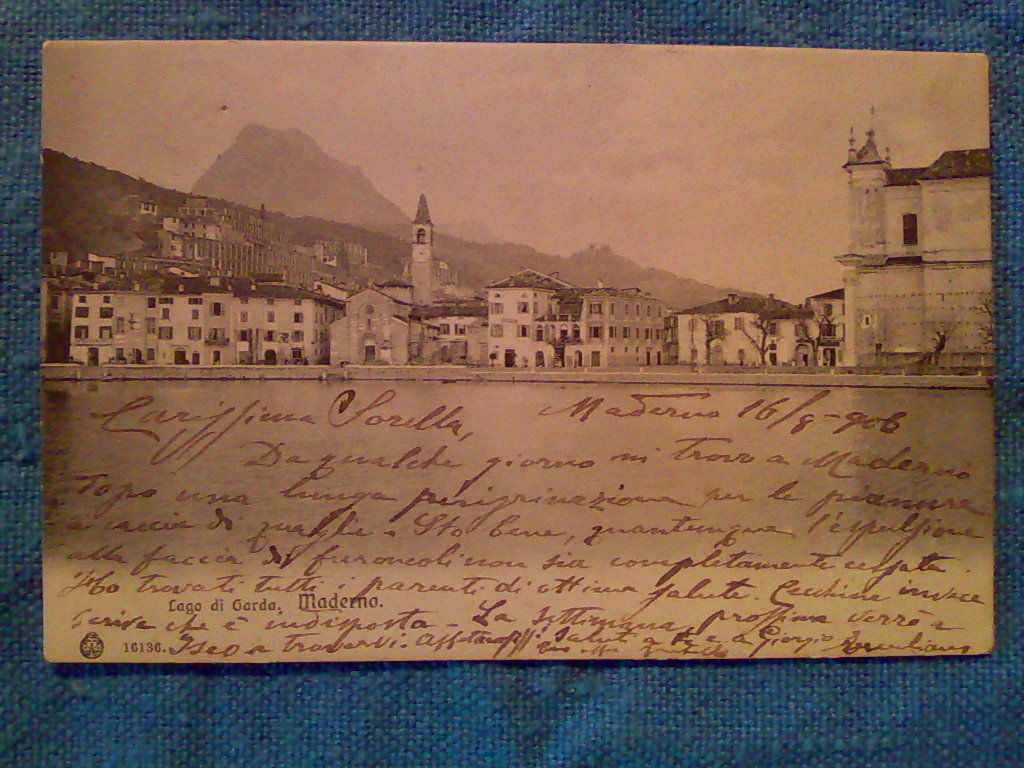 Carissima Sorella, Maderno 16/8-906
Da qualche giorno mi trovo a Maderno
dopo una lunga perigrinazione per le pianure
a caccia di quaglie. Sto bene, quantunque l'espulsione
alla faccia di furoncoli non sia completamente cessata.
Ho trovati tutti i parenti di ottima salute. Cecchina invece
Lago di Garda. Maderno.
scrive che è indisposta - La settimana prossima verrò a
16136. Iseo a trovarvi. saluti a te e a Giorgio